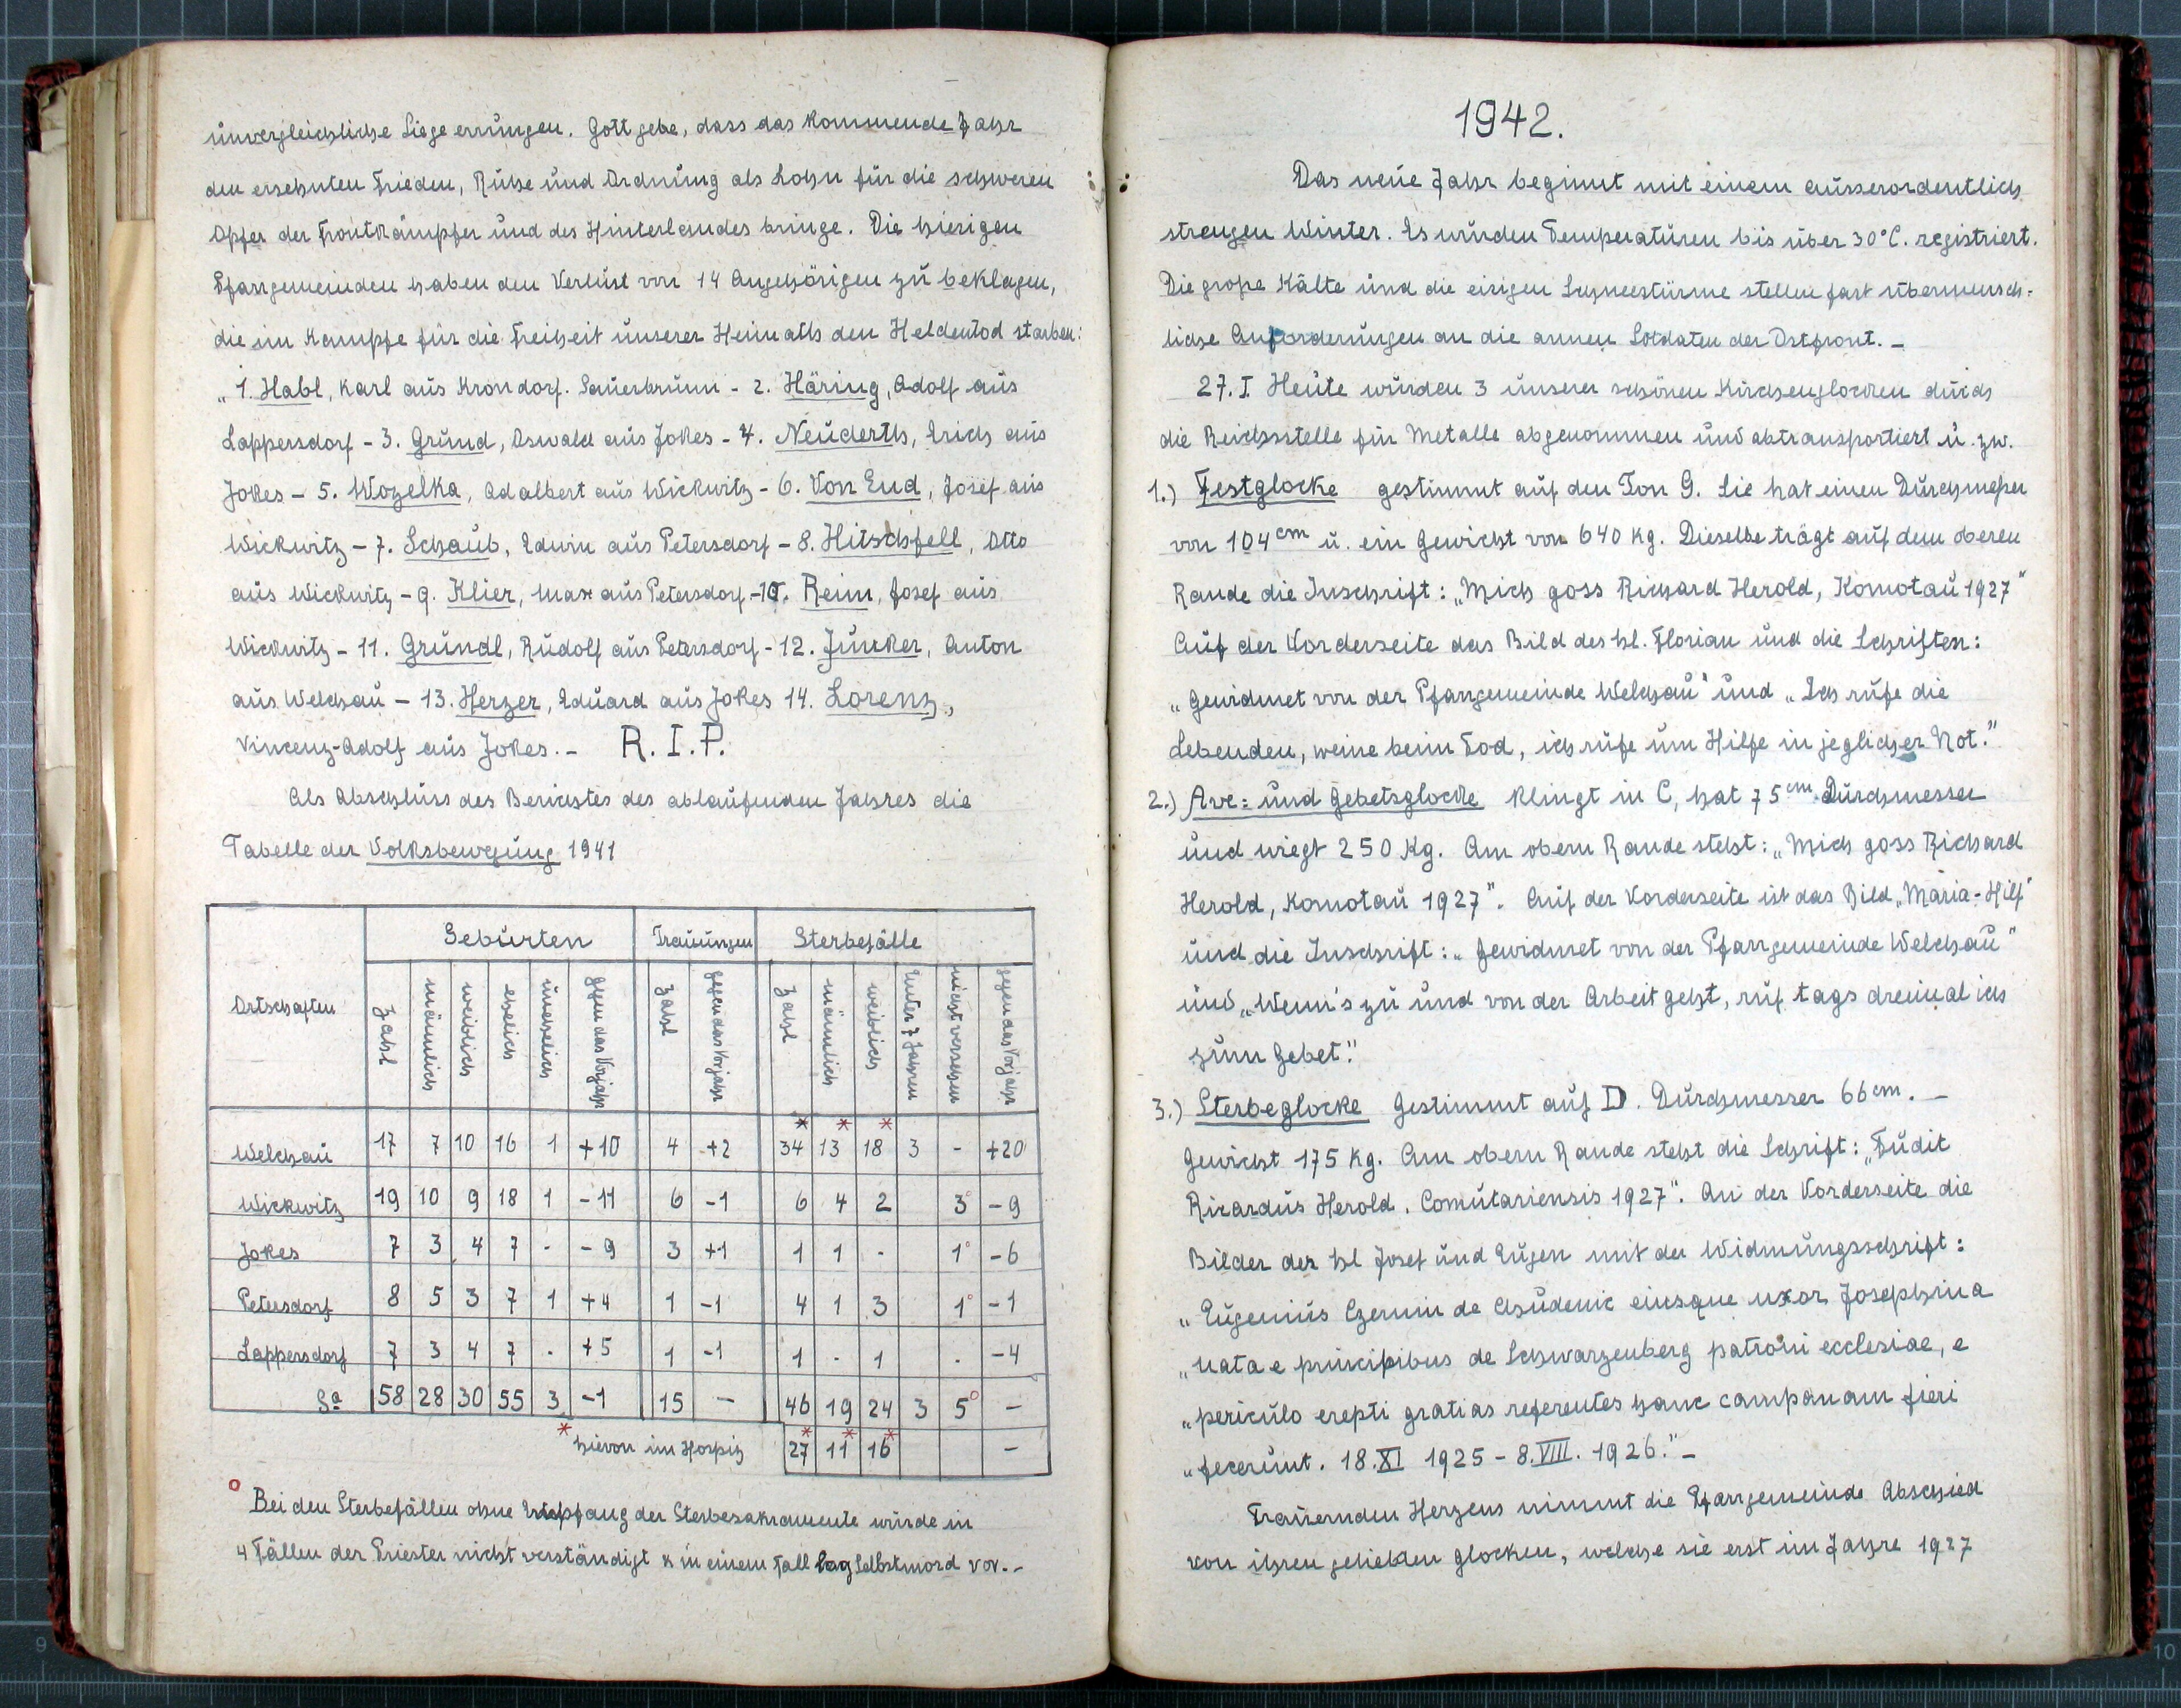 unvergleichliche Siege errungen. Gott gebe, dass das kommende Jahr
den ersehnten Frieden, Ruhe und Ordnung als Lohn für die schweren
Opfer der Frontkämpfer und des Hinterlandes bringe. Die hierigen
Pfarrgemeinden haben den Verlust von 14 Angehörigen zu beklagen,
die im Kampfe für die Freiheit unserer Heimath den Heldentod starben:
„1. Habl, Karl aus Krondorf. Sauerbrunn - 2. Häring, Adolf aus
Lappersdorf - 3. Grund, Oswald aus Jokes - 4. Neuderth, Erich aus
Jokes - 5. Wozelka, Adalbert aus Wickwitz - 6. Von End, Josef aus
Wickwitz - 7. Schaub, Edwin aus Petersdorf - 8. Hitschfell, Otto
aus Wickwitz - 9. Klier, Max aus Petersdorf - 10. Reim, Josef aus
Wickwitz - 11. Gründl, Rudolf aus Petersdorf - 12. Juncker, Anton
aus Welchau - 13. Herzer, Eduard aus Jokes 14. Lorenz,
Vincenz-Adolf aus Jokes. - R. I. P.
Als Abschluss des Berichtes des ablaufenden Jahres die
Tabelle der Volksbewegung 1941
Geburten Trauungen Sterbefälle
Ortschaften Zahl männlich weiblich ehelich unehelich gegen das Vorjahr Zahl gegen das Vorjahr Zahl männlich weiblich Unter 7 Jahren nicht versehen gegen das Vorjahr
* * *
Welchau 17 7 10 16 1 +10 4 +2 34 13 18 3 - +20
Wickwitz 19 10 9 18 1 -11 6 -1 6 4 2 3° -9
Jokes 7 3 4 7 - -9 3 +1 1 1 - 1° -6
Petersdorf 8 5 3 7 1 +4 1 -1 4 1 3 1° -1
Lappersdorf 7 3 4 7 . +5 1 -1 1 - 1 . -4
Sa 58 28 30 55 3 -1 15 - 46 19 24 3 5° -
* hievon im Hospiz 27* 11* 16* -
° Bei den Sterbefällen ohne Empfang der Sterbesakramente wurde in
4 Fällen der Priester nicht verständigt & in einem Fall lag Selbstmord vor.-
1942.
Das neue Jahr beginnt mit einem ausserordentlich
strengen Winter. Es wurden Temperaturen bis über 30°C. registriert.
Die große Kälte und die eisigen Schneestürme stellen fast übermensch-
liche Anforderungen an die armen Soldaten der Ostfront. -
27. I. Heute wurden 3 unserer schönen Kirchenglocken durch
die Reichsstelle für Metalle abgenommen und abtransportiert u. zw.
1.) Festglocke gestimmt auf den Ton G. Sie hat einen Durchmeßer
von 104 cm u. ein Gewicht von 640 kg. Dieselbe trägt auf dem oberen
Rande die Inschrift: „Mich goss Richard Herold, Komotau 1927"
Auf der Vorderseite das Bild des hl. Florian und die Schriften:
„Gewidmet von der Pfarrgemeinde Welchau" und „Ich rufe die
Lebenden, weine beim Tod, ich rufe um Hilfe in jeglicher Not."
2.) Ave= und Gebetsglocke klingt in C, hat 75 cm Durchmesser
und wiegt 250 Kg. Am obern Rande steht: „Mich goss Richard
Herold, Komotau 1927". Auf der Vorderseite ist das Bild „Maria-Hilf"
und die Inschrift: „Gewidmet von der Pfarrgemeinde Welchau"
und „Wenn's zu und von der Arbeit geht, ruf tags dreimal ich
zum Gebet."
3.) Sterbeglocke Gestimmt auf D. Durchmesser 66 cm. -
Gewicht 175 Kg. Am obern Rande steht die Schrift: „Fudit
Ricardus Herold. Comutariensis 1927". An der Vorderseite die
Bilder der hl Josef und Eugen mit der Widmungsschrift:
„Eugenius Czernin de Chudenic eiusque uxor Josephina
„nata e principibus de Schwarzenberg patroni ecclesiae, e
„periculo erepti gratias referentes hanc campanam fieri
„fecerunt. 18. XI 1925 - 8. VIII. 1926." -
Trauernden Herzens nimmt die Pfarrgemeinde Abschied
von ihren geliebten Glocken, welche sie erst im Jahre 1927
9
10